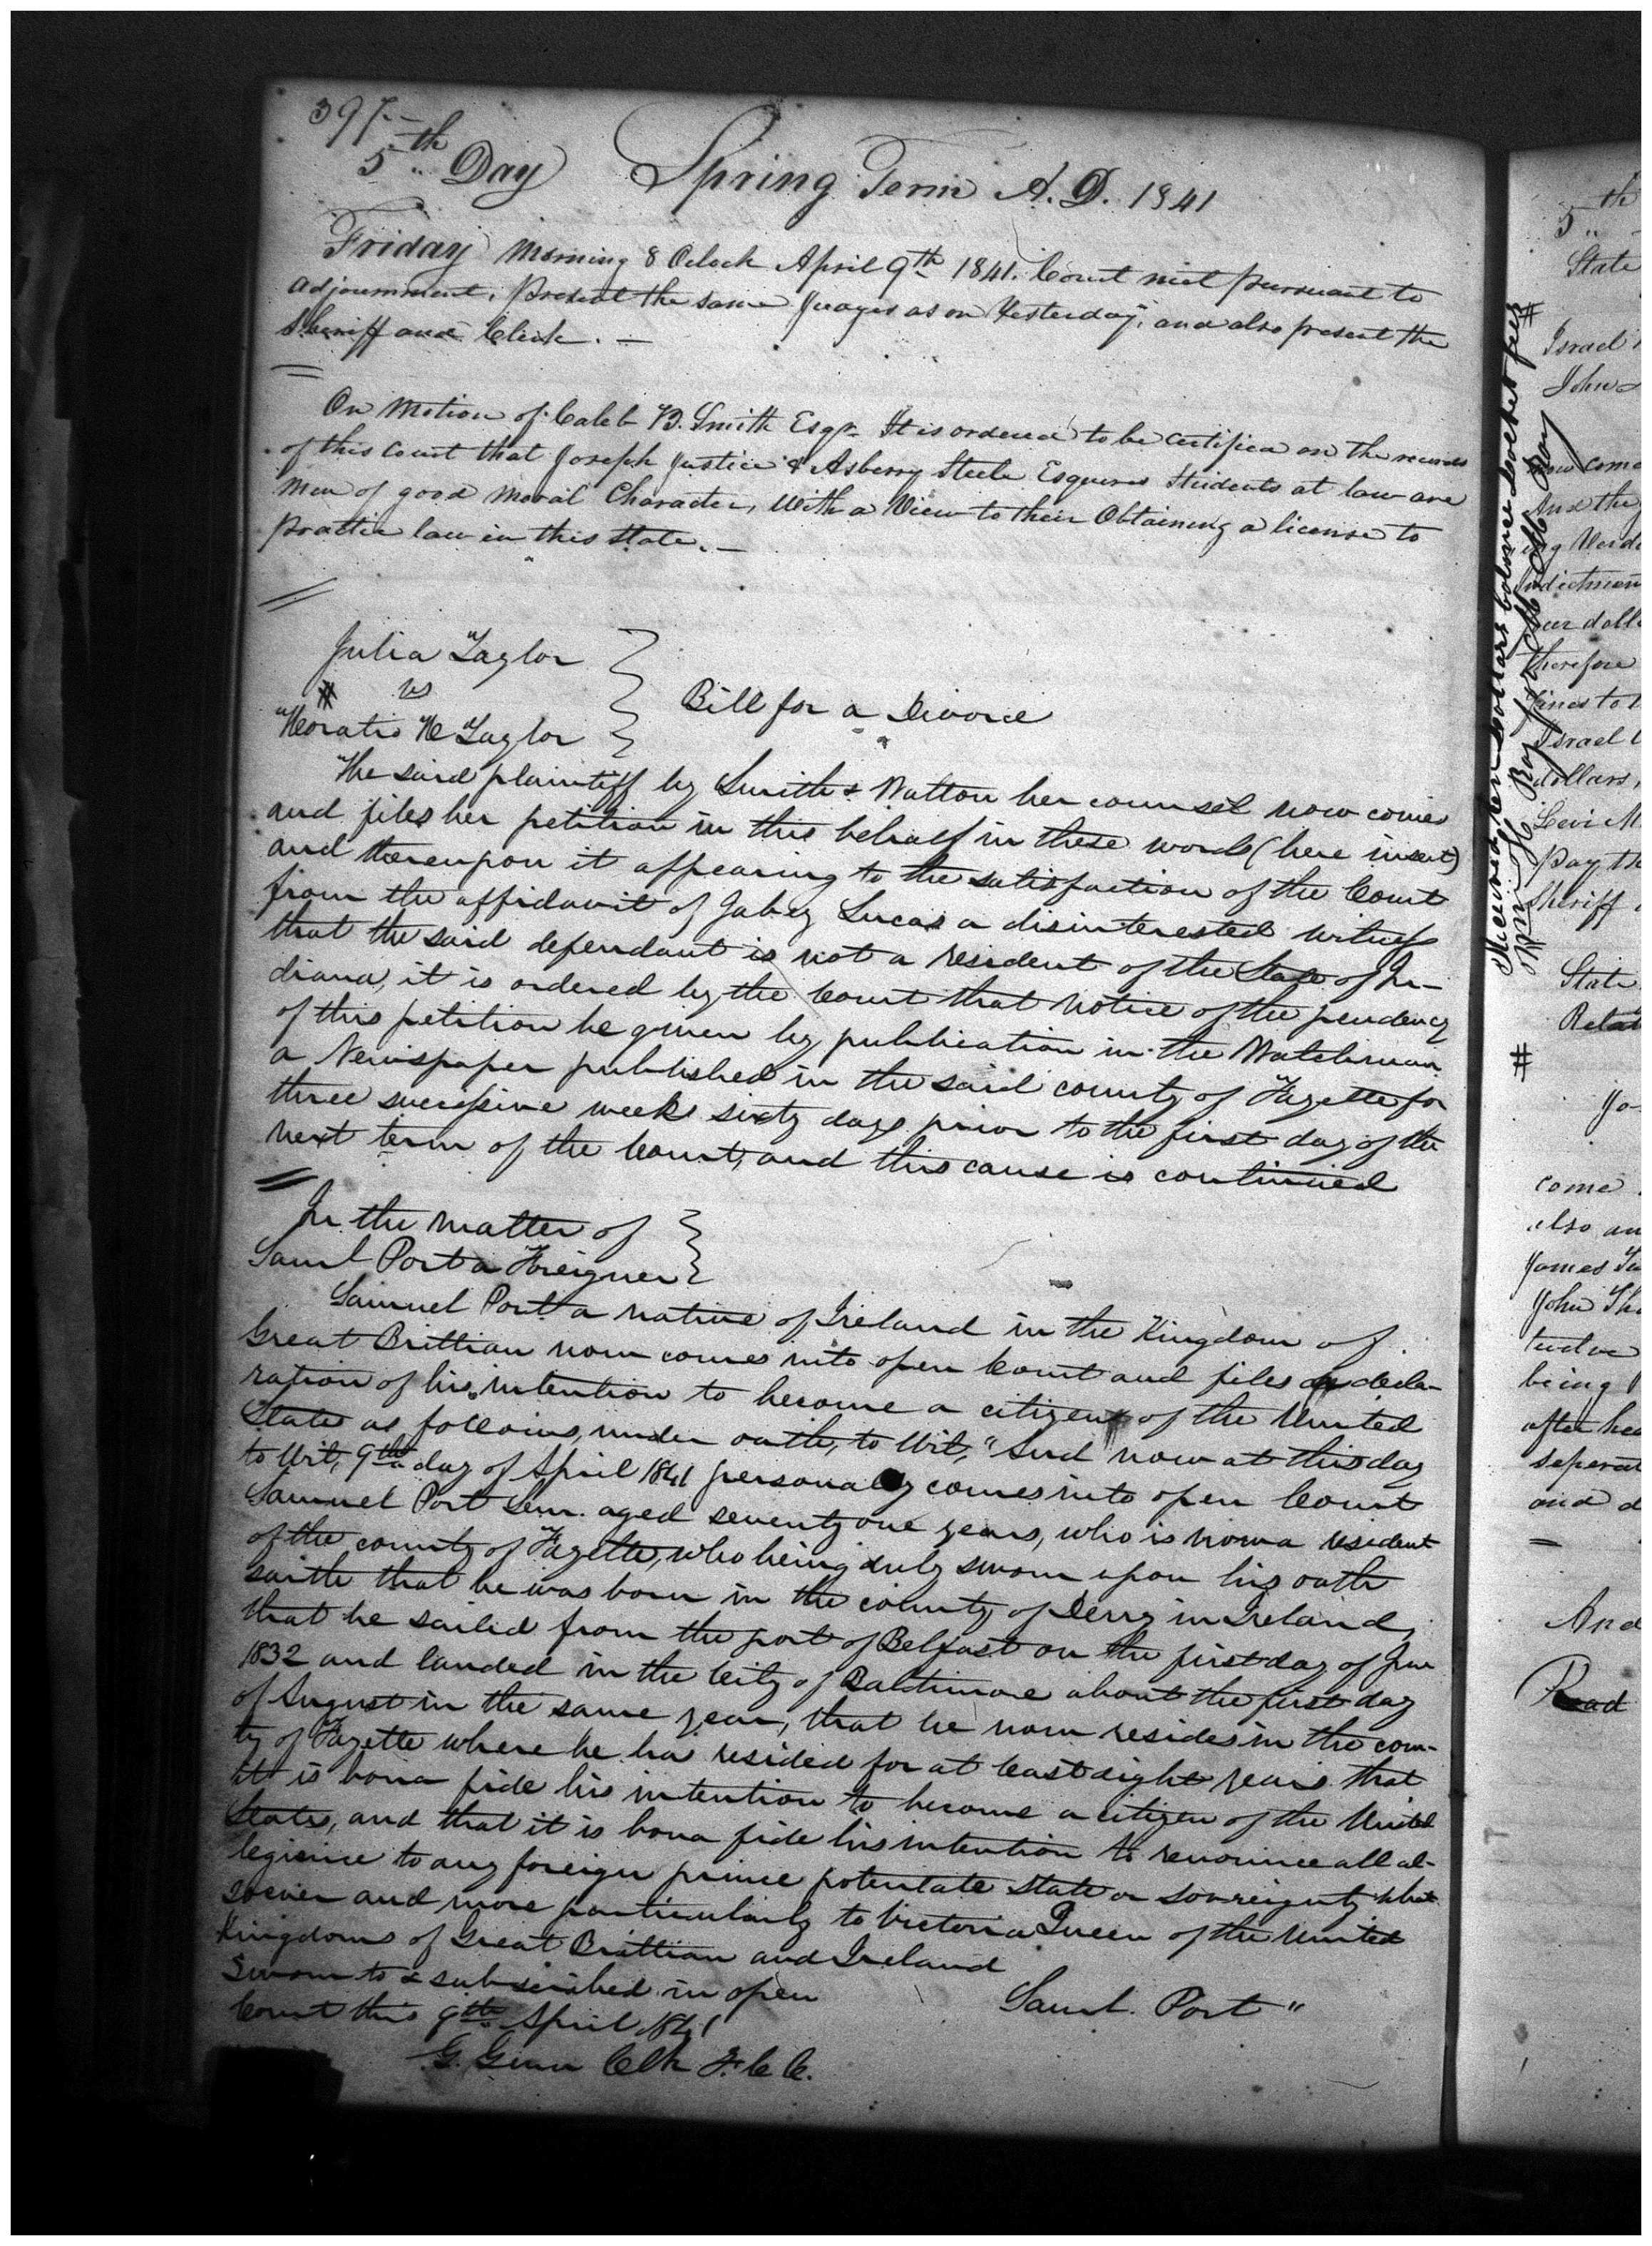 397
5th Day Spring Term A.D. 1841
Friday Morning 8 Oclock April 9th 1841. Court met pursuant to
adjournment. Present the same Judges as on Yesterday, and also present the
Sheriff and Clerk. —
On Motion of Caleb B. Smith Esqr. It is ordered to be certified on the records
of this Court that Joseph Justice & Asberry Steele Esquires Students at law are
Men of good Moral Character, With a View to their Obtaining a license to
practice law in this State. —
Julia Taylor
# vs
Horatio H Taylor
Bill for a Divorce
The said plaintiff by Smith & Watton her counsel now comes
and files her petition in this behalf in these words (here insert)
and thereupon it appearing to the satisfaction of the Court
from the affidavit of Jabez Lucas a disinterested witness
that the said defendant is not a resident of the State of In-
diana, it is ordered by the Court that notice of the pendency
of this petition be given by publication in the Watchman
a Newspaper published in the said county of Fayette for
three successive weeks sixty days prior to the first day of the
next term of the Court, and this cause is continued
In the matter of
Saml Port a Foreigner
Samuel Port a native of Ireland in the Kingdom of
Great Brittian now comes into open Court and files a decla-
ration of his intention to become a citizen of the United
States as follows, under oath, to Wit, "And now at this day
to Wit, 9th day of April 1841 personally comes into open Court
Samuel Port Sen. aged seventy one years, who is now a resident
of the county of Fayette, who being duly sworn upon his oath
saith that he was born in the county of Derry in Ireland,
that he sailed from the port of Belfast on the first day of June
1832 and landed in the City of Baltimore about the first day
of August in the same year, that he now resides in the coun-
ty of Fayette where he has resided for at least eight years that
it is bona fide his intention to become a citizen of the United
States, and that it is bona fide his intention to renounce all al-
legience to any foreign prince potentate state or sovreignty what
soever and more particularly to Victoria Queen of the United
Kingdoms of Great Brittian and Ireland
Sworn to & subscribed in open
Court this 9th April 1841
Saml. Port "
G. Ginn Clk F. C. C.
5th
State
#
Israel
John
now come
And the
ing Verd
indictmen
four dolla
therefore
fines to t
Israel
dollars,
Levi M
pay th
Sheriff
State
Relat
#
Jo-
come
also an
James
John Th
twelve
being
after hea
seperat
and d
And
Read